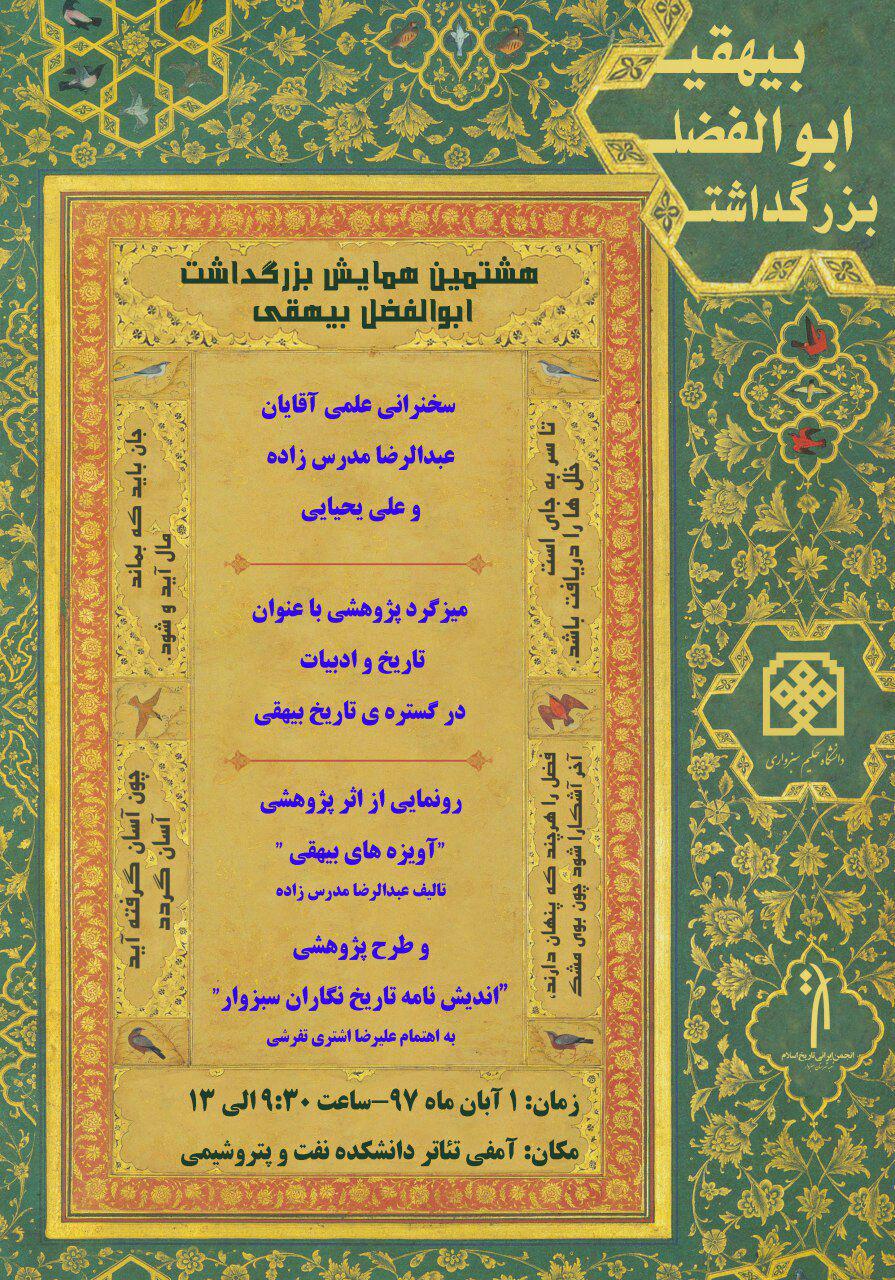 بیهقیـ
ابوالفضلـ
بزرگداشتـ
هشتمین همایش بزرگداشت
ابوالفضل بیهقی
سخنرانی علمی آقایان
عبدالرضا مدرس زاده
و علی یحیایی
میزگرد پژوهشی با عنوان
تاریخ و ادبیات
در گستره ی تاریخ بیهقی
رونمایی از اثر پژوهشی
"آویزه های بیهقی "
تالیف عبدالرضا مدرس زاده
و طرح پژوهشی
"اندیش نامه تاریخ نگاران سبزوار"
به اهتمام علیرضا اشتری تفرشی
تا سر به جای است
خلل ها را دریافت باشد.
فضل را هرچند که پنهان دارند،
آخر آشکارا شود چون بوی مشک
جان باید که بماند
مال آید و شود.
چون آسان گرفته آید
آسان گردد
زمان: ۱ آبان ماه ۹۷-ساعت ۹:۳۰ الی ۱۳
مکان: آمفی تئاتر دانشکده نفت و پتروشیمی
دانشگاه حکیم سبزواری
انجمن ایرانی تاریخ اسلام